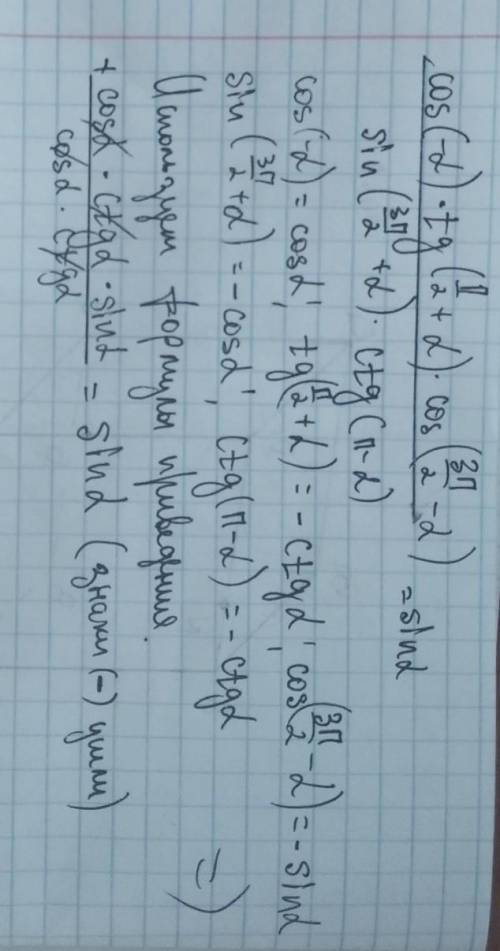 cos(-α)·tg(π/2+α)·cos(3π/2-α)
sin(3π/2+α)·ctg(π-α)
=sinα
cos(-α)=cosα, tg(π/2+α)=-ctgα, cos(3π/2-α)=-sinα
sin(3π/2+α)=-cosα, ctg(π-α)=-ctgα
Используем формулы приведения. =)
+ cosα·ctgα·sinα
cosα·ctgα
= sinα (знаки (-) ушли)